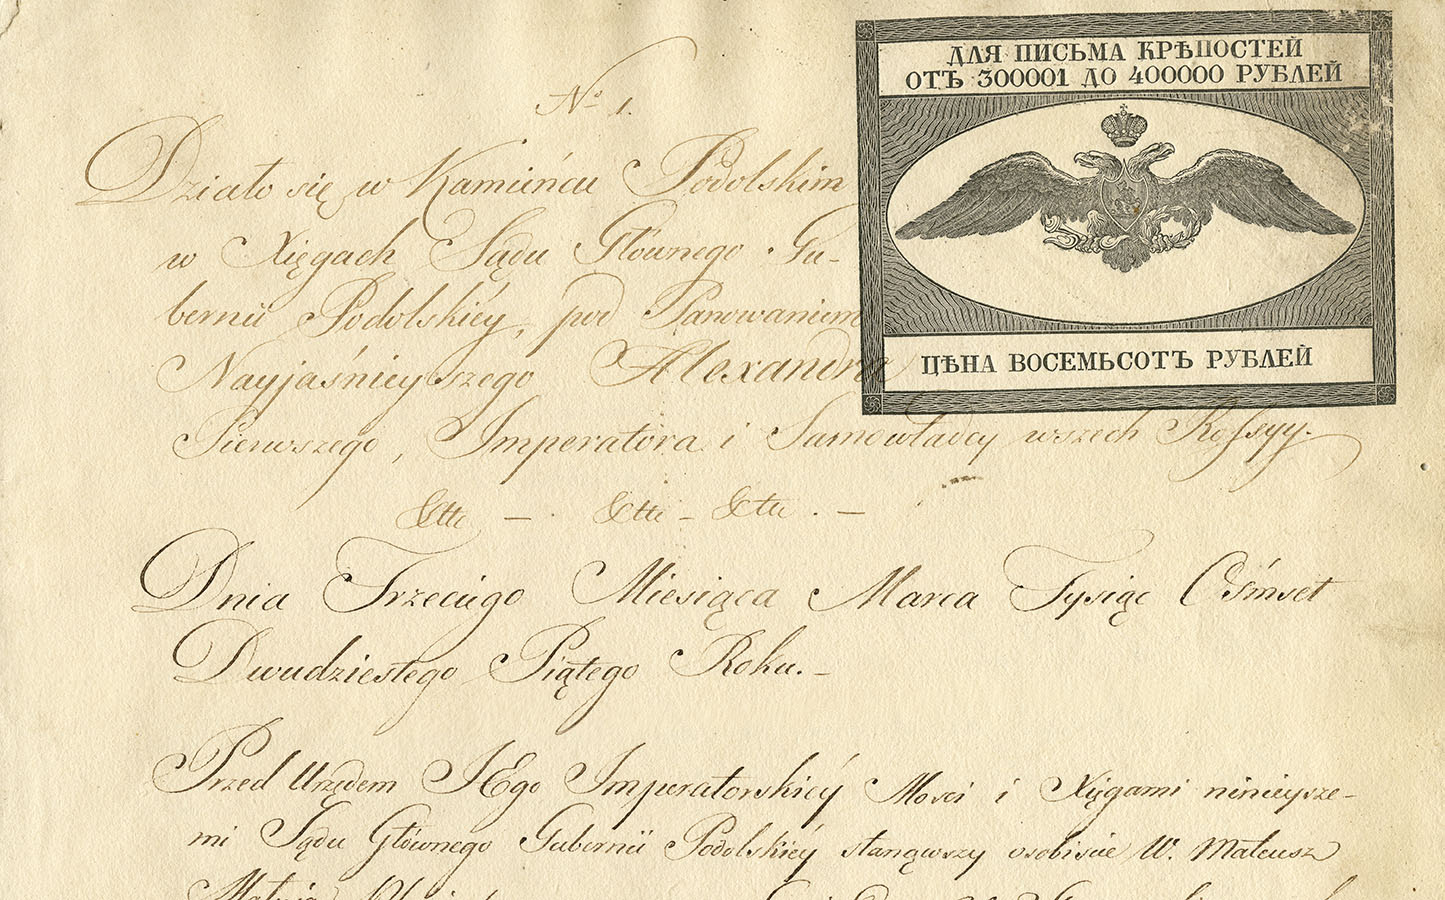 ДЛЯ ПИСЬМА КРѢПОСТЕЙ
ОТЪ 300001 ДО 400000 РУБЛЕЙ
ЦѢНА ВОСЕМЬСОТЪ РУБЛЕЙ
No 1.
Działo się w Kamieńcu Podolskim
w Xięgach Sądu Głównego Gu-
bernii Podolskiéy, pod Panowaniem
Nayjaśnieyszego Alexandra
Pierwszego, Imperatora i Samowładcy wszech Rossyy.
Dnia Trzeciego Miesiąca Marca Tysiąc Ośmset
Dwudziestego Piątego Roku.-
Przed Urzędem JEgo Imperatorskiéy Mosci i Xięgami ninieysze-
mi Sądu Głównego Gubernii Podolskiéy stanąwszy osobiscie W. Mateusz